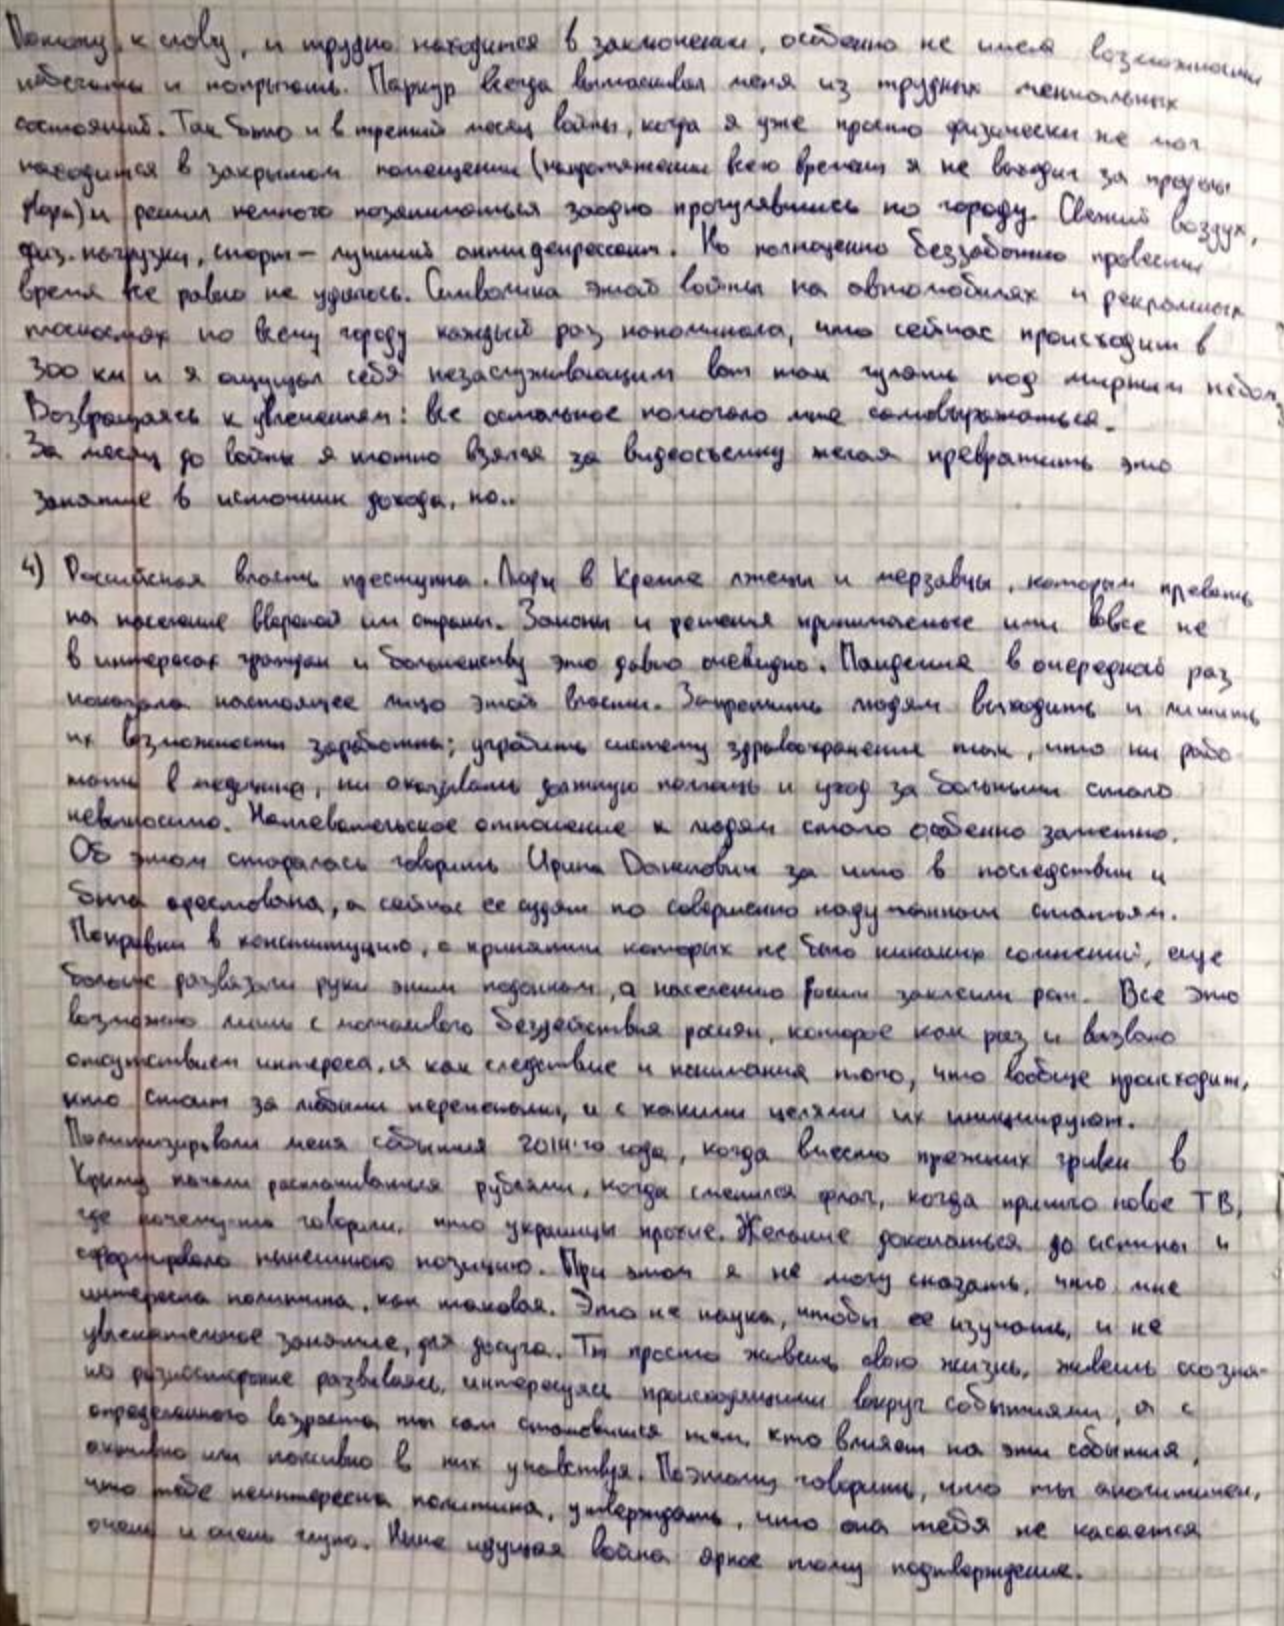 Потому, к слову, и трудно находится в заключении, особенно не имея возможности
набегаться и напрыгаться. Паркур всегда вытаскивал меня из трудных ментальных
состояний. Так было и в третий месяц войны, когда я уже просто физически не мог
находится в закрытом помещении (напротяжении всего времени я не выходил за пределы
двора) и решил немного позаниматься заодно прогулявшись по городу. Свежий воздух,
физ. нагрузки, спорт – лучший антидепрессант. Но полноценно беззаботно провести
время все равно не удалось. Символика этой войны на автомобилях и рекламных
плоскостях по всему городу каждый раз напоминала, что сейчас происходит в
300 км и я ощущал себя незаслуживающим вот так гулять под мирным небом.
Возвращаясь к увлечениям: все остальное помогало мне самовыражаться.
За месяц до войны я плотно взялся за видеосъемку желая превратить это
занятие в источник дохода, но..
4) Российская власть преступна. Люди в Кремле лжецы и мерзавцы, которым плевать
на население вверенной им страны. Законы и решения принимаемые ими вовсе не
в интересах граждан и большенству это давно очевидно. Пандемия в очередной раз
показала настоящее лицо этой власти. Запретить людям выходить и лишить
их возможности заработать; угробить систему здравоохранения так, что ни рабо-
тать в медицине, ни оказывать должную помощь и уход за больными стало
невыносимо. Наплевательское отношение к людям стало особенно заметно.
Об этом старалась говорить Ирина Данилович за что в последствии и
была арестована, а сейчас ее судят по совершенно надуманным статьям.
Поправки в конституцию, о принятии которых не было никаких сомнений, еще
больше развязали руки этим подонкам, а населению России заклеили рот. Все это
возможно лишь с молчаливого бездействия россиян, которое как раз и вызвано
отсутствием интереса, и как следствие и понимания того, что вообще происходит,
кто стоит за любыми переменами, и с какими целями их инициируют.
Политизировали меня события 2014-го года, когда вместо прежних гривен в
Крыму начали расплачиваться рублями, когда сменился флаг, когда пришло новое ТВ,
где почему-то говорили, что украинцы плохие. Желание докопаться до истины и
сформировало нынешнюю позицию. При этом я не могу сказать, что мне
интересна политика, как таковая. Это не наука, чтобы ее изучать, и не
увлекательное занятие, для досуга. Ты просто живешь свою жизнь, живешь осозна-
но разносторонне развиваясь, интересуясь происходящими вокруг событиями, а с
определенного возраста ты сам становишься тем, кто влияет на эти события,
активно или пассивно в них учавствуя. Поэтому говорить, что ты аполитичен,
что тебе неинтересна политика, утверждать, что она тебя не касается
очень и очень глупо. Ныне идущая война яркое тому подтверждение.